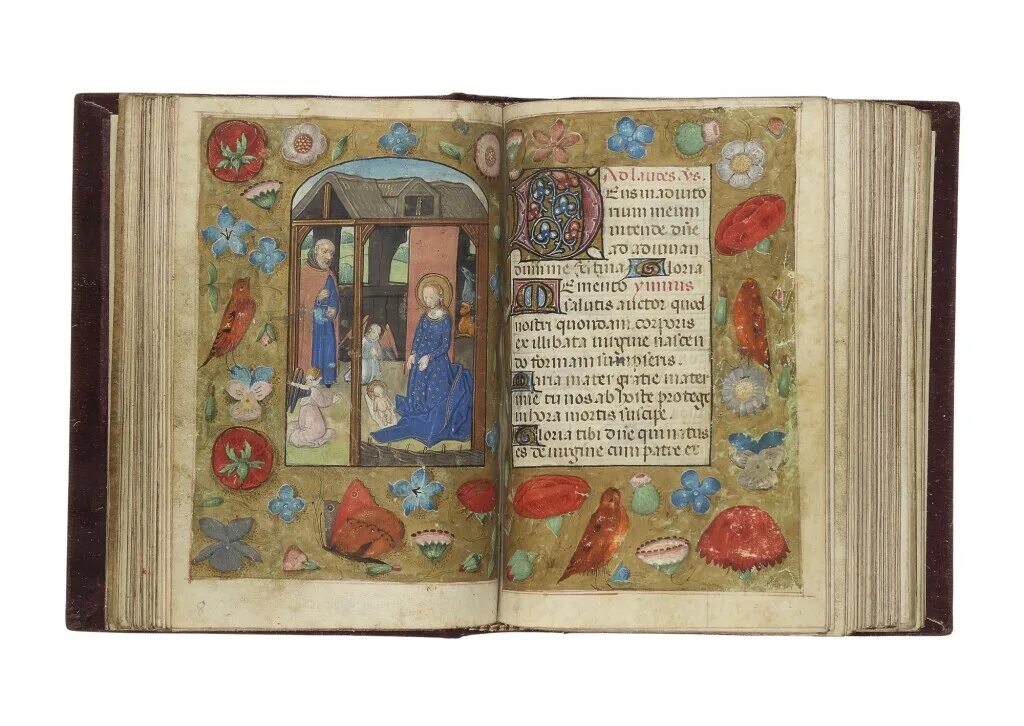 Ad laudes. Vs.
Eus in adiuto
rium meum
intende. Dñe
ad adiuuan
dum me festina Gloria
Memento ymnus
salutis auctor quod
nostri quondam corporis
ex illibata uirgine nascen
do formam sumpseris.
Maria mater gratie mater
mie tu nos ab hoste protege
in hora mortis suscipe.
Gloria tibi dñe qui natus
es de uirgine cum patre et